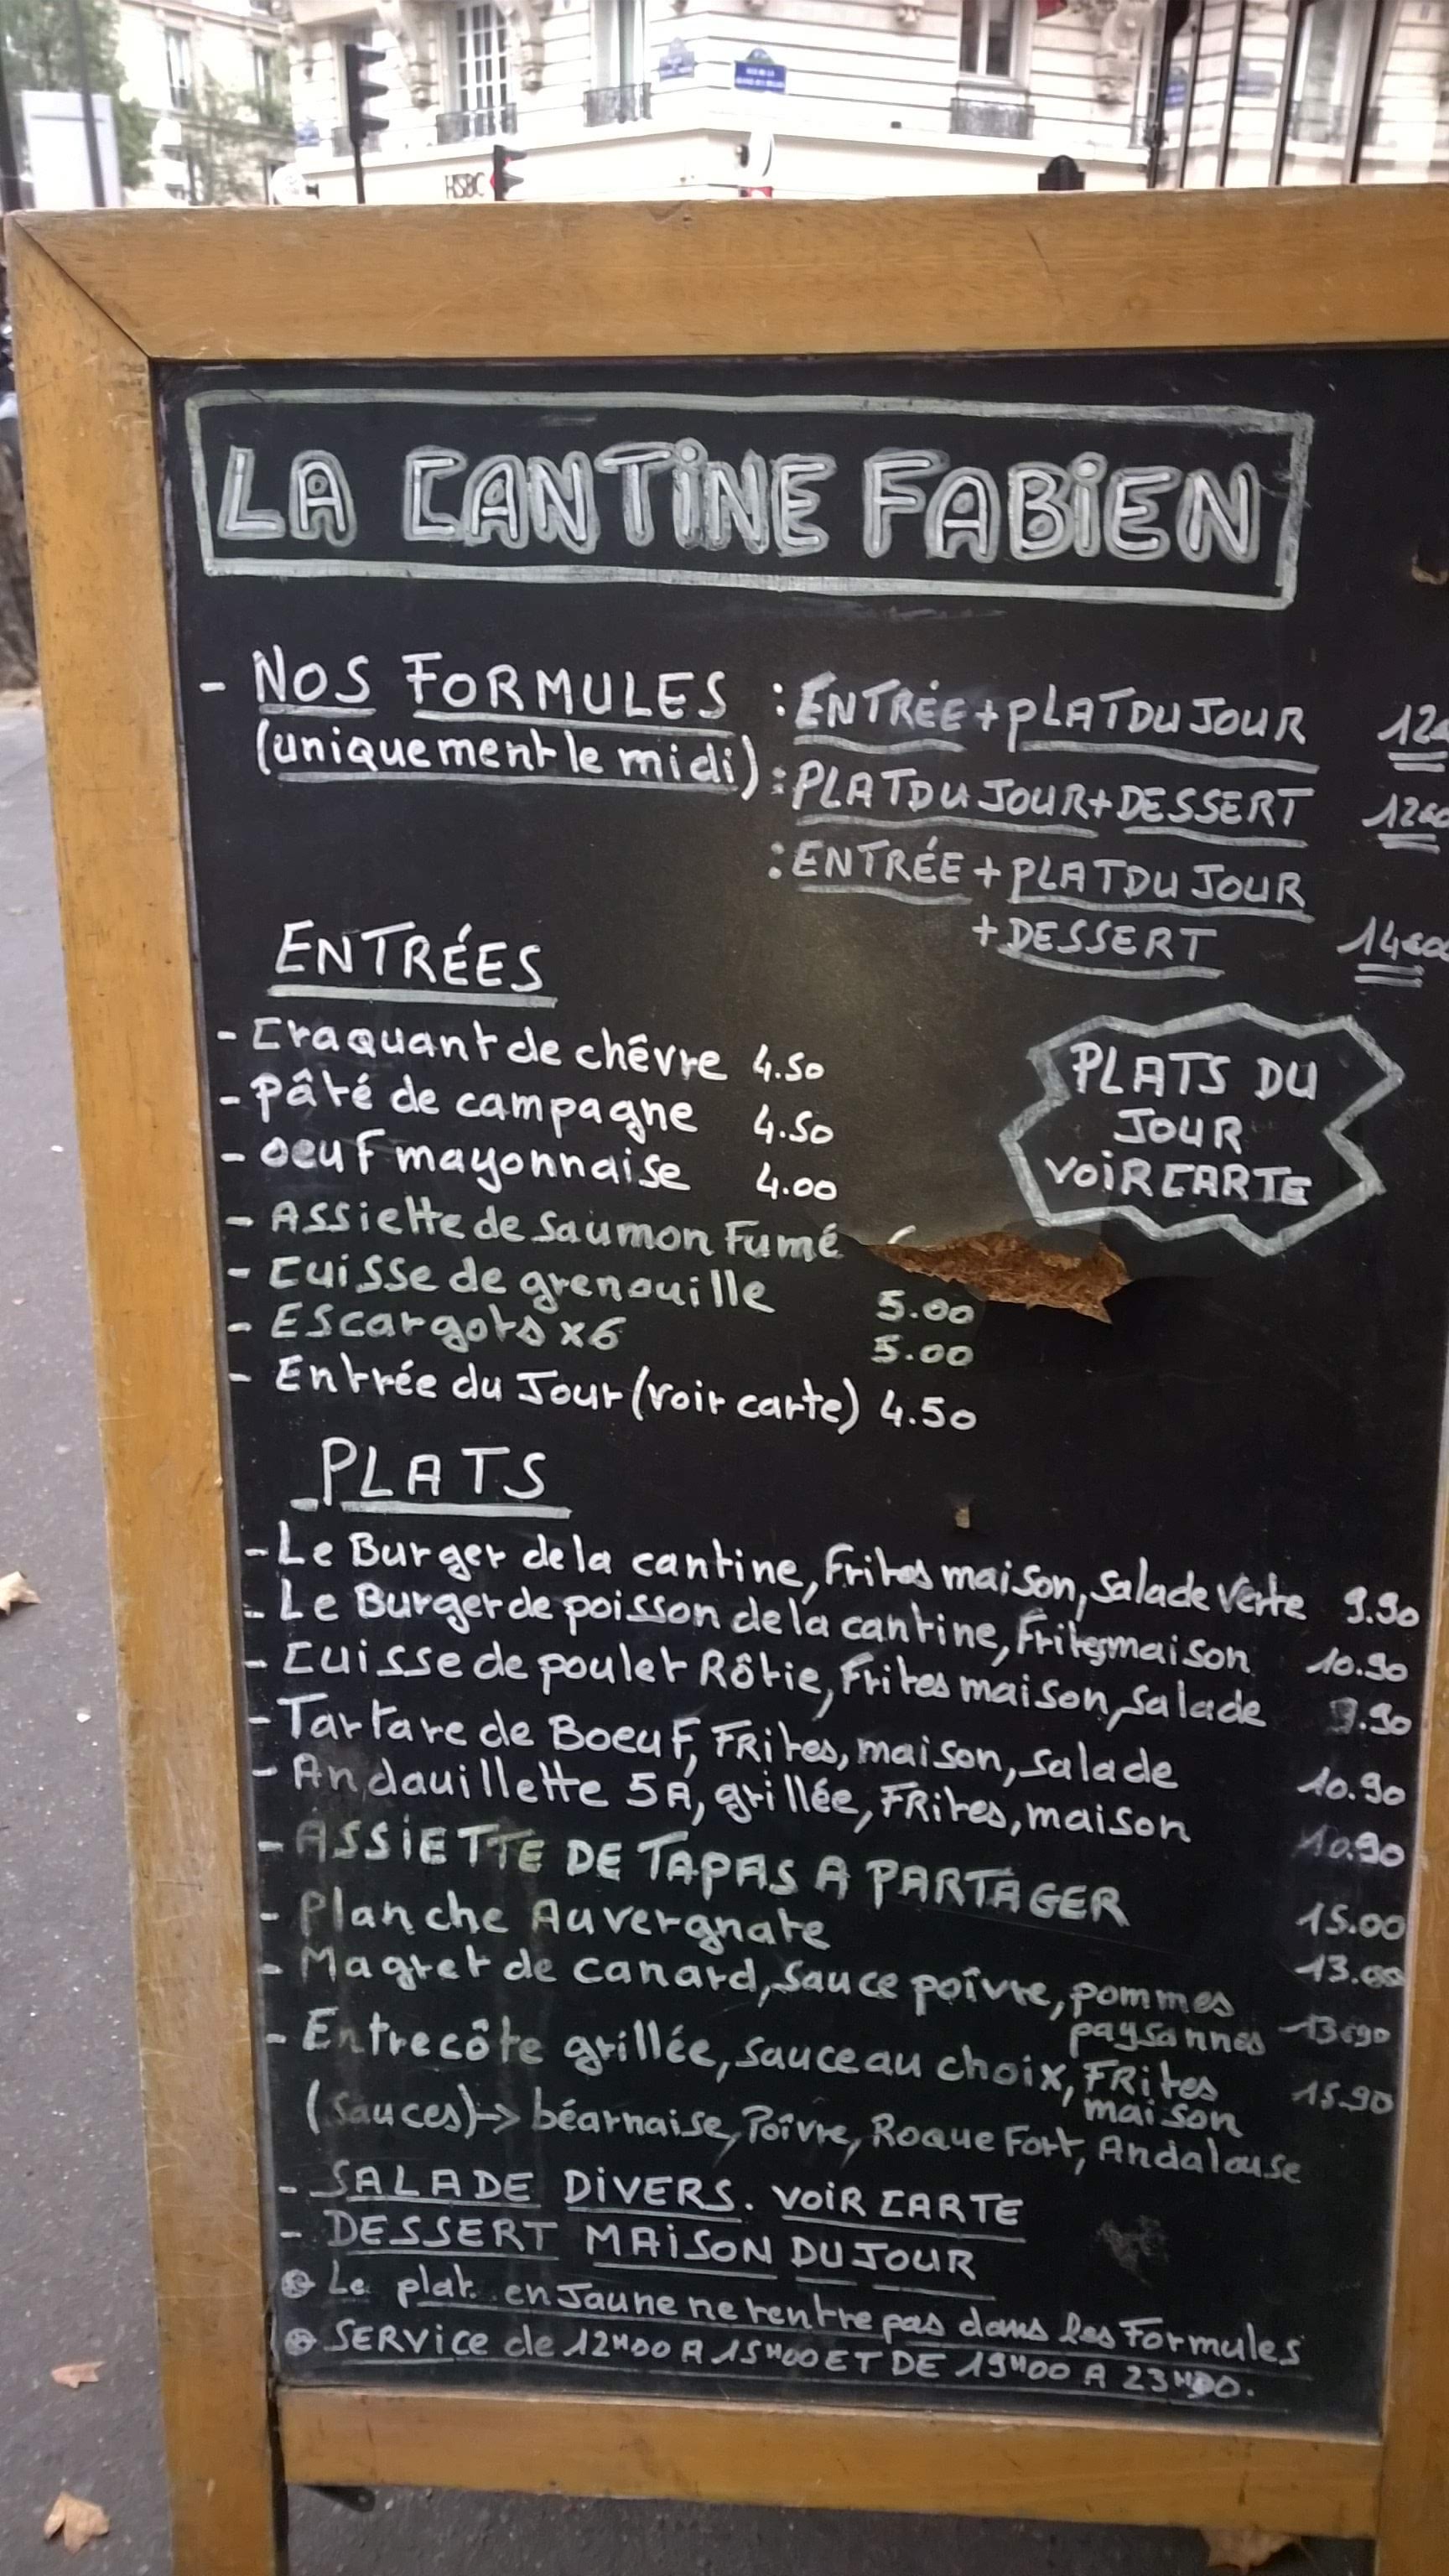 HSBC
LA CANTINE FABIEN
- NOS FORMULES : ENTRÉE + PLAT DU JOUR
(uniquement le midi) : PLAT DU JOUR + DESSERT 12€00
: ENTRÉE + PLAT DU JOUR
+ DESSERT 14€00
ENTRÉES
- Craquant de chêvre 4.50
- Pâté de campagne 4.50
- Oeuf mayonnaise 4.00
- Assiette de saumon Fumé
- Cuisse de grenouille 5.00
- Escargots x6 5.00
- Entrée du Jour (voir carte) 4.50
PLATS DU
JOUR
VOIR CARTE
PLATS
- Le Burger de la cantine, Frites maison, Salade Verte 9.90
- Le Burger de poisson de la cantine, Frites maison 10.90
- Cuisse de poulet Rôtie, Frites maison, salade 9.90
- Tartare de Boeuf, FRites, maison, salade 10.90
- Andouillette 5A, grillée, FRites, maison 10.90
- ASSIETTE DE TAPAS A PARTAGER 15.00
- Planche Auvergnate 13.00
- Magret de canard, sauce poîvre, pommes
paysannes 13€90
- Entrecôte grillée, sauce au choix, FRites 15.90
maison
(Sauces) -> béarnaise, Poîvre, Roque Fort, Andalouse
- SALADE DIVERS. VOIR CARTE
- DESSERT MAISON DU JOUR
Le plat en Jaune ne rentre pas dans les Formules
SERVICE de 12H00 A 15H00 ET DE 19H00 A 23H00.